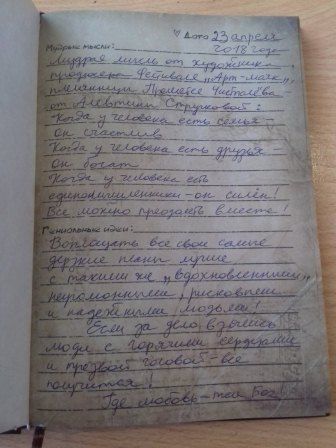 ♡ Дата 23 апреля
Мудрые мысли: 2018 года
Мудрая мысль от художника,
фестиваля „Арт-маяк",
племянницы Прометея Чисталёва -
от Алевтины Струковой:
Когда у человека есть семья -
он счастлив
Когда у человека есть друзья -
он богат
Когда у человека есть
единомышленники - он силён!
Все можно преодолеть вместе!
Гениальные идеи:
Воплощать все свои самые
дерзкие планы лучше
с такими же „вдохновенными"
неугомонными, рисковыми
и надежными людьми!
Если за дело взялись
люди с горячими сердцами
и трезвой головой - все
получится!
Где любовь - там Бог!